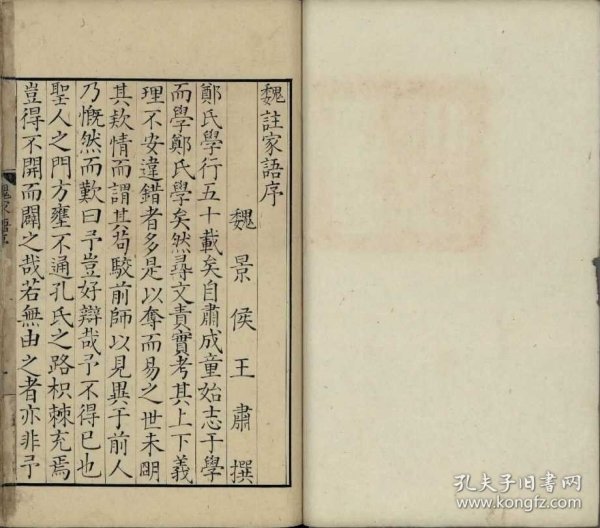 魏註家語序
魏景侯王肅撰
鄭氏學行五十載矣自肅成童始志于學
而學鄭氏學矣然尋文責實考其上下義
理不安違錯者多是以奪而易之世未明
其欵情而謂其苟駁前師以見異于前人
乃慨然而歎曰予豈好辯哉予不得已也
聖人之門方壅不通孔氏之路枳棘充焉
豈得不開而闢之哉若無由之者亦非予
孔夫子旧书网
www.kongfz.com